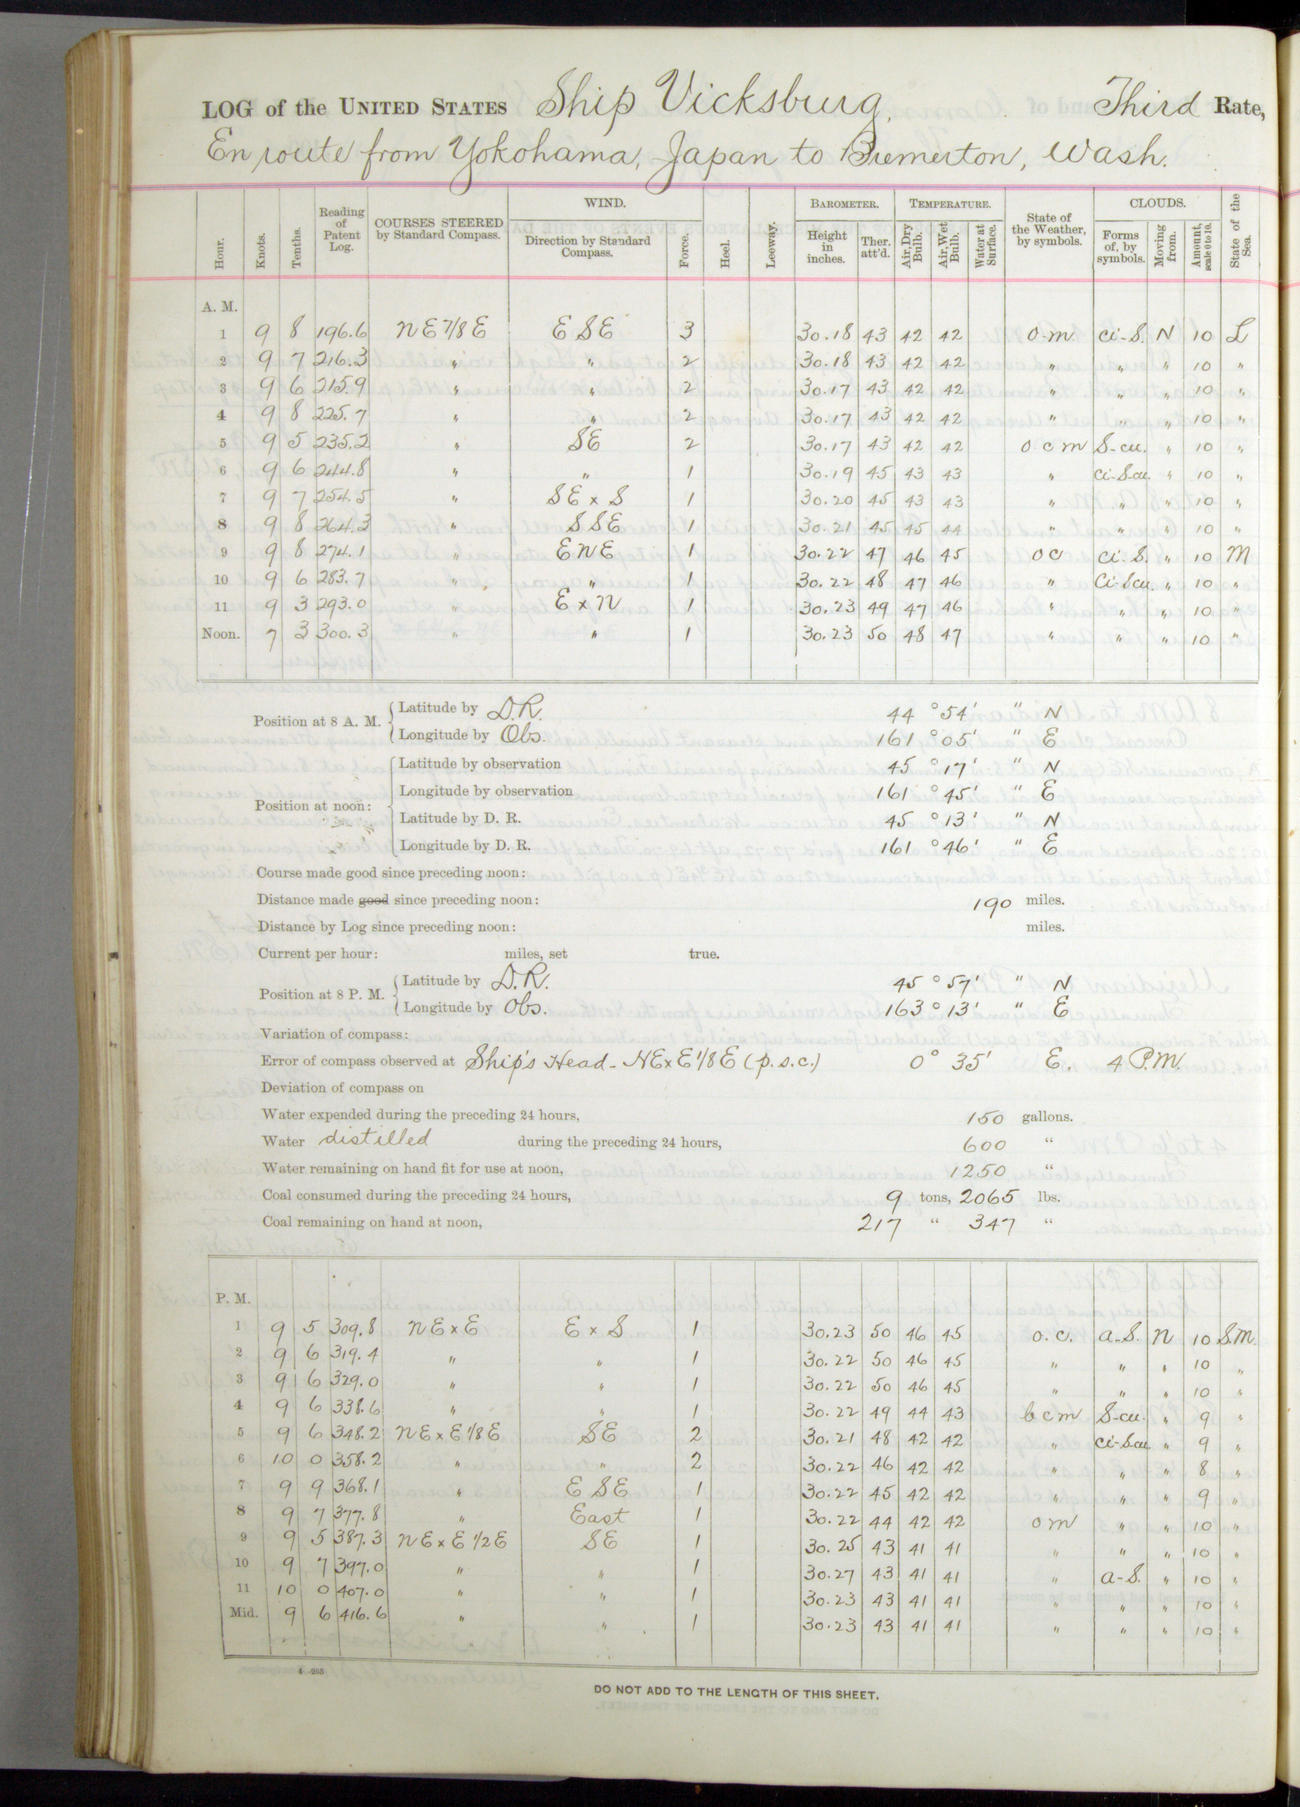 LOG of the UNITED STATES Ship Vicksburg, Third Rate,
En route from Yokohama, Japan to Bremerton, Wash.
Hour. Knots. Tenths. Reading of Patent Log. COURSES STEERED by Standard Compass. WIND. Direction by Standard Compass. Force. Heel. Leeway. BAROMETER. Height in inches. Ther. att'd. TEMPERATURE. Air, Dry Bulb. Air, Wet Bulb. Water at Surface. State of the Weather, by symbols. CLOUDS. Forms of, by symbols. Moving from. Amount, scale 0 to 10. State of the Sea.
A. M.
1 9 8 196.6 NE 7/8 E ESE 3 30.18 43 42 42 o.m Ci-S. N 10 L
2 9 7 216.3 " " 2 30.18 43 42 42 " " " 10 "
3 9 6 215.9 " " 2 30.17 43 42 42 " " " 10 "
4 9 8 225.7 " " 2 30.17 43 42 42 " " " 10 "
5 9 5 235.2 " SE 2 30.17 43 42 42 o c m S-cu. " 10 "
6 9 6 244.8 " " 1 30.19 45 43 43 " Ci-S-cu. " 10 "
7 9 7 254.5 " SE x S 1 30.20 45 43 43 " " " 10 "
8 9 8 264.3 " SSE 1 30.21 45 45 44 " " " 10 "
9 9 8 274.1 " ENE 1 30.22 47 46 45 o c Ci-S. " 10 M
10 9 6 283.7 " " 1 30.22 48 47 46 " Ci-S-cu. " 10 "
11 9 3 293.0 " E x N 1 30.23 49 47 46 " " " 10 "
Noon. 7 3 300.3 " " 1 30.23 50 48 47 " " " 10 "
Position at 8 A. M. Latitude by D.R. 44 ° 54' " N
Longitude by Obs. 161 ° 05' " E
Position at noon: Latitude by observation 45 ° 17' " N
Longitude by observation 161 ° 45' " E
Latitude by D. R. 45 ° 13' " N
Longitude by D. R. 161 ° 46' " E
Course made good since preceding noon:
Distance made good since preceding noon: 190 miles.
Distance by Log since preceding noon: miles.
Current per hour: miles, set true.
Position at 8 P. M. Latitude by D.R. 45 ° 57' " N
Longitude by Obs. 163 ° 13' " E
Variation of compass:
Error of compass observed at Ship's Head - NE x E 1/8 E (p.s.c.) 0° 35' E. 4 P.M.
Deviation of compass on
Water expended during the preceding 24 hours, 150 gallons.
Water distilled during the preceding 24 hours, 600 "
Water remaining on hand fit for use at noon, 1250 "
Coal consumed during the preceding 24 hours, 9 tons, 2065 lbs.
Coal remaining on hand at noon, 217 " 347 "
P. M.
1 9 5 309.8 NE x E E x S 1 30.23 50 46 45 o.c. a-S. N 10 S.M.
2 9 6 319.4 " " 1 30.22 50 46 45 " " " 10 "
3 9 6 329.0 " " 1 30.22 50 46 45 " " " 10 "
4 9 6 338.6 " " 1 30.22 49 44 43 b c m S-cu. " 9 "
5 9 6 348.2 NE x E 1/8 E SE 2 30.21 48 42 42 " Ci-S-cu. " 9 "
6 10 0 358.2 " " 2 30.22 46 42 42 " " " 8 "
7 9 9 368.1 " ESE 1 30.22 45 42 42 " " " 9 "
8 9 7 377.8 " East 1 30.22 44 42 42 o m " " 10 "
9 9 5 387.3 NE x E 1/2 E SE 1 30.25 43 41 41 " " " 10 "
10 9 7 397.0 " " 1 30.27 43 41 41 " a-S. " 10 "
11 10 0 407.0 " " 1 30.23 43 41 41 " " " 10 "
Mid. 9 6 416.6 " " 1 30.23 43 41 41 " " " 10 "
DO NOT ADD TO THE LENGTH OF THIS SHEET.